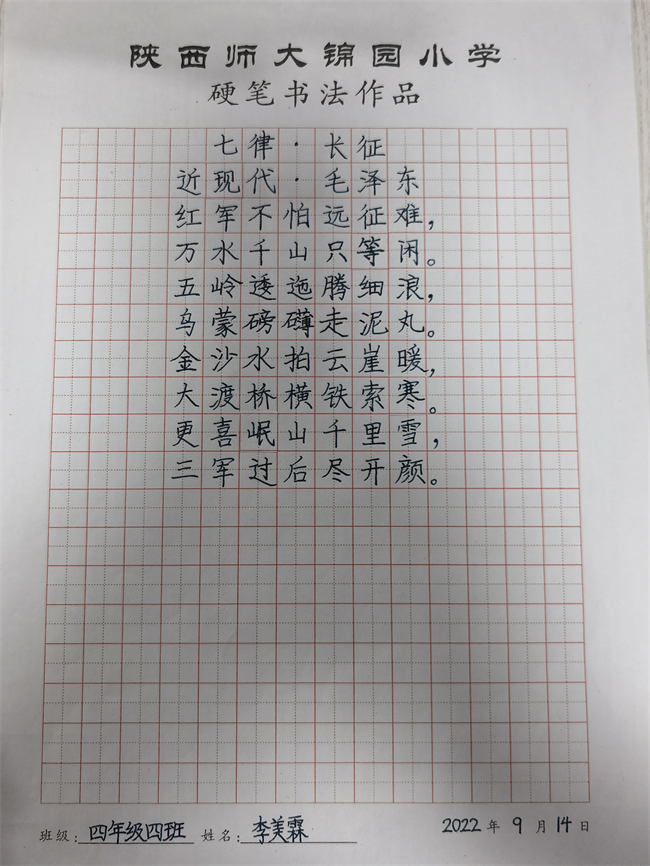 陕西师大锦园小学
硬笔书法作品
七律·长征
近现代·毛泽东
红军不怕远征难，
万水千山只等闲。
五岭逶迤腾细浪，
乌蒙磅礴走泥丸。
金沙水拍云崖暖，
大渡桥横铁索寒。
更喜岷山千里雪，
三军过后尽开颜。
班级：四年级四班 姓名：李美霖 2022年9月14日